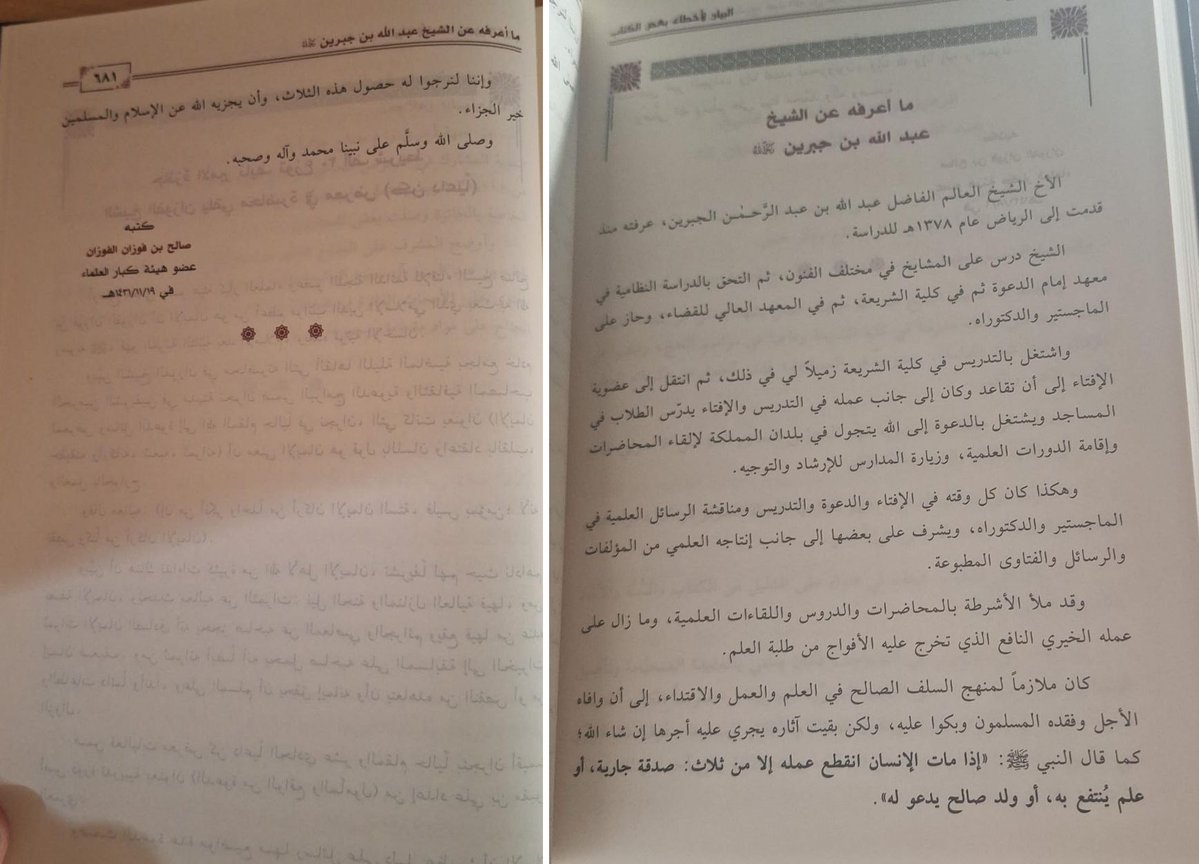 البيان لأخطاء بعض الكتاب
ما أعرفه عن الشيخ
عبد الله بن جبرين رحمه الله
الأخ الشيخ العالم الفاضل عبد الله بن عبد الرَّحمٰن الجبرين، عرفته منذ
قدمت إلى الرياض عام ١٣٧٨هـ للدراسة.
الشيخ درس على المشايخ في مختلف الفنون، ثم التحق بالدراسة النظامية في
معهد إمام الدعوة ثم في كلية الشريعة، ثم في المعهد العالي للقضاء، وحاز على
الماجستير والدكتوراه.
واشتغل بالتدريس في كلية الشريعة زميلاً لي في ذلك، ثم انتقل إلى عضوية
الإفتاء إلى أن تقاعد وكان إلى جانب عمله في التدريس والإفتاء يدرّس الطلاب في
المساجد ويشتغل بالدعوة إلى الله يتجول في بلدان المملكة لإلقاء المحاضرات
وإقامة الدورات العلمية، وزيارة المدارس للإرشاد والتوجيه.
وهكذا كان كل وقته في الإفتاء والدعوة والتدريس ومناقشة الرسائل العلمية في
الماجستير والدكتوراه، ويشرف على بعضها إلى جانب إنتاجه العلمي من المؤلفات
والرسائل والفتاوى المطبوعة.
وقد ملأ الأشرطة بالمحاضرات والدروس واللقاءات العلمية، وما زال على
عمله الخيري النافع الذي تخرج عليه الأفواج من طلبة العلم.
كان ملازماً لمنهج السلف الصالح في العلم والعمل والاقتداء، إلى أن وافاه
الأجل وفقده المسلمون وبكوا عليه، ولكن بقيت آثاره يجري عليه أجرها إن شاء الله؛
كما قال النبي ﷺ: «إذا مات الإنسان انقطع عمله إلا من ثلاث: صدقة جارية، أو
علم يُنتفع به، أو ولد صالح يدعو له».
ما أعرفه عن الشيخ عبد الله بن جبرين رحمه الله
٦٨١
وإننا لنرجوا له حصول هذه الثلاث، وأن يجزيه الله عن الإسلام والمسلمين
خير الجزاء.
وصلى الله وسلَّم على نبينا محمد وآله وصحبه.
كتبه
صالح بن فوزان الفوزان
عضو هيئة كبار العلماء
في ١٤٣١/١١/١٩هـ